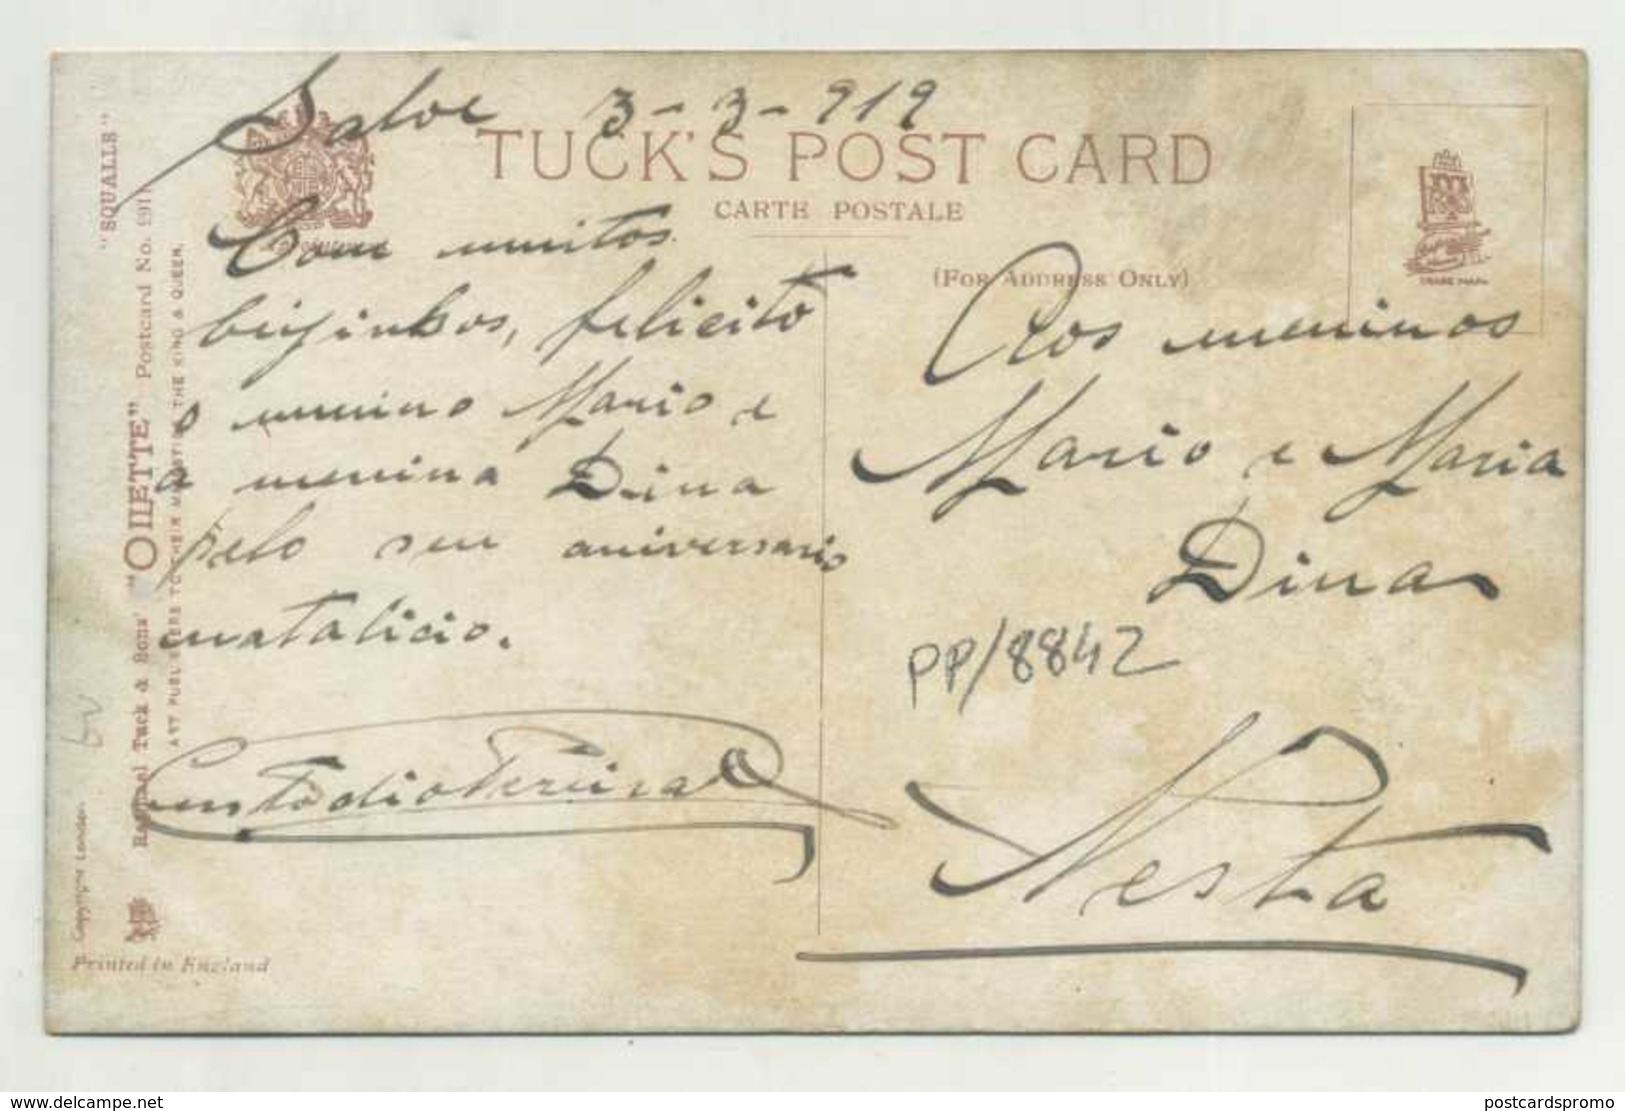 Salve 3-3-919
TUCK'S POST CARD
CARTE POSTALE
(FOR ADDRESS ONLY)
TRADE MARK
Com muitos
beijinhos, felicito
o menino Mario e
a menina Dina
pelo seu aniversario
natalicio.
Custodio Pereira
Aos meninos
Mario e Maria
Dina
PP/8842
Nesta
"SQUALLS"
Raphael Tuck & Sons' "OILETTE" Postcard No.
ART PUBLISHERS TO THEIR MAJESTIES THE KING & QUEEN.
Copyright London
Printed in England
www.delcampe.net
postcardspromo